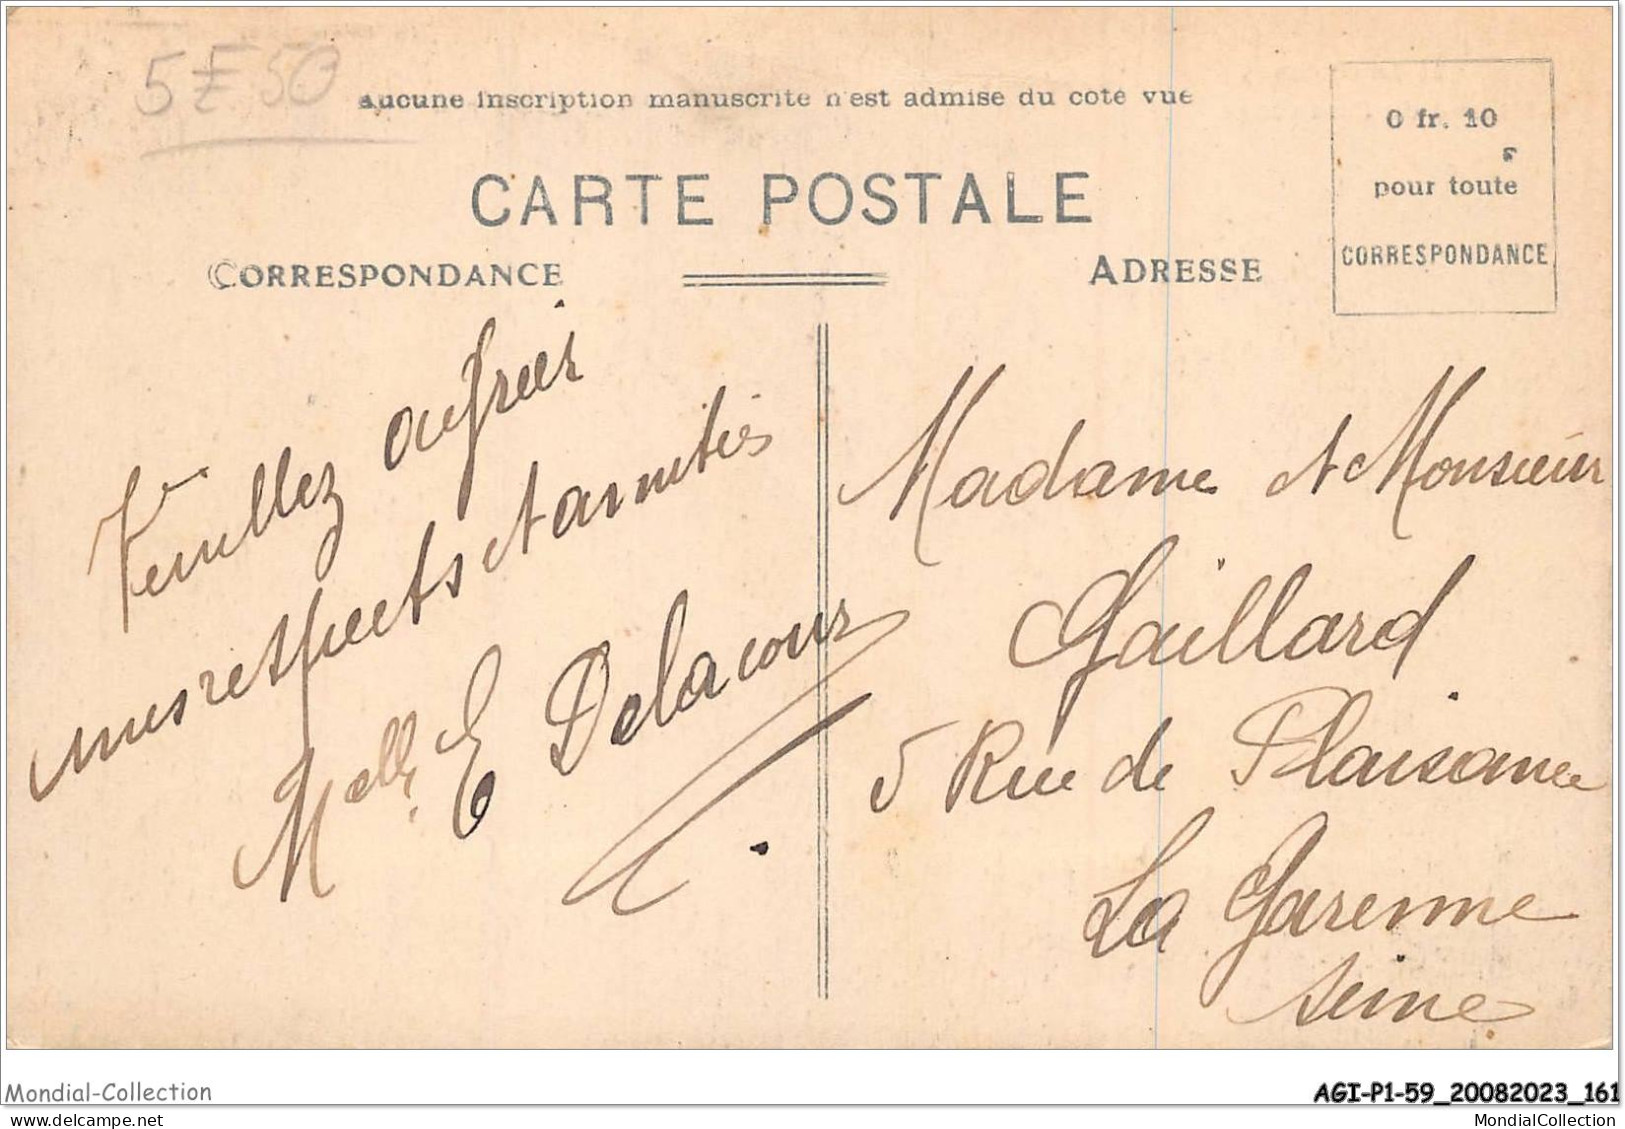 5F50
Aucune inscription manuscrite n'est admise du coté vue
0 fr. 10
pour toute
CORRESPONDANCE
CARTE POSTALE
CORRESPONDANCE
ADRESSE
Veuillez agréer
mes respects et amitiés
Melle E Delacour
Madame et Monsieur
Gaillard
5 Rue de Plaisance
La Garenne
Seine
Mondial-Collection
AGI-P1-59_20082023_161
MondialCollection